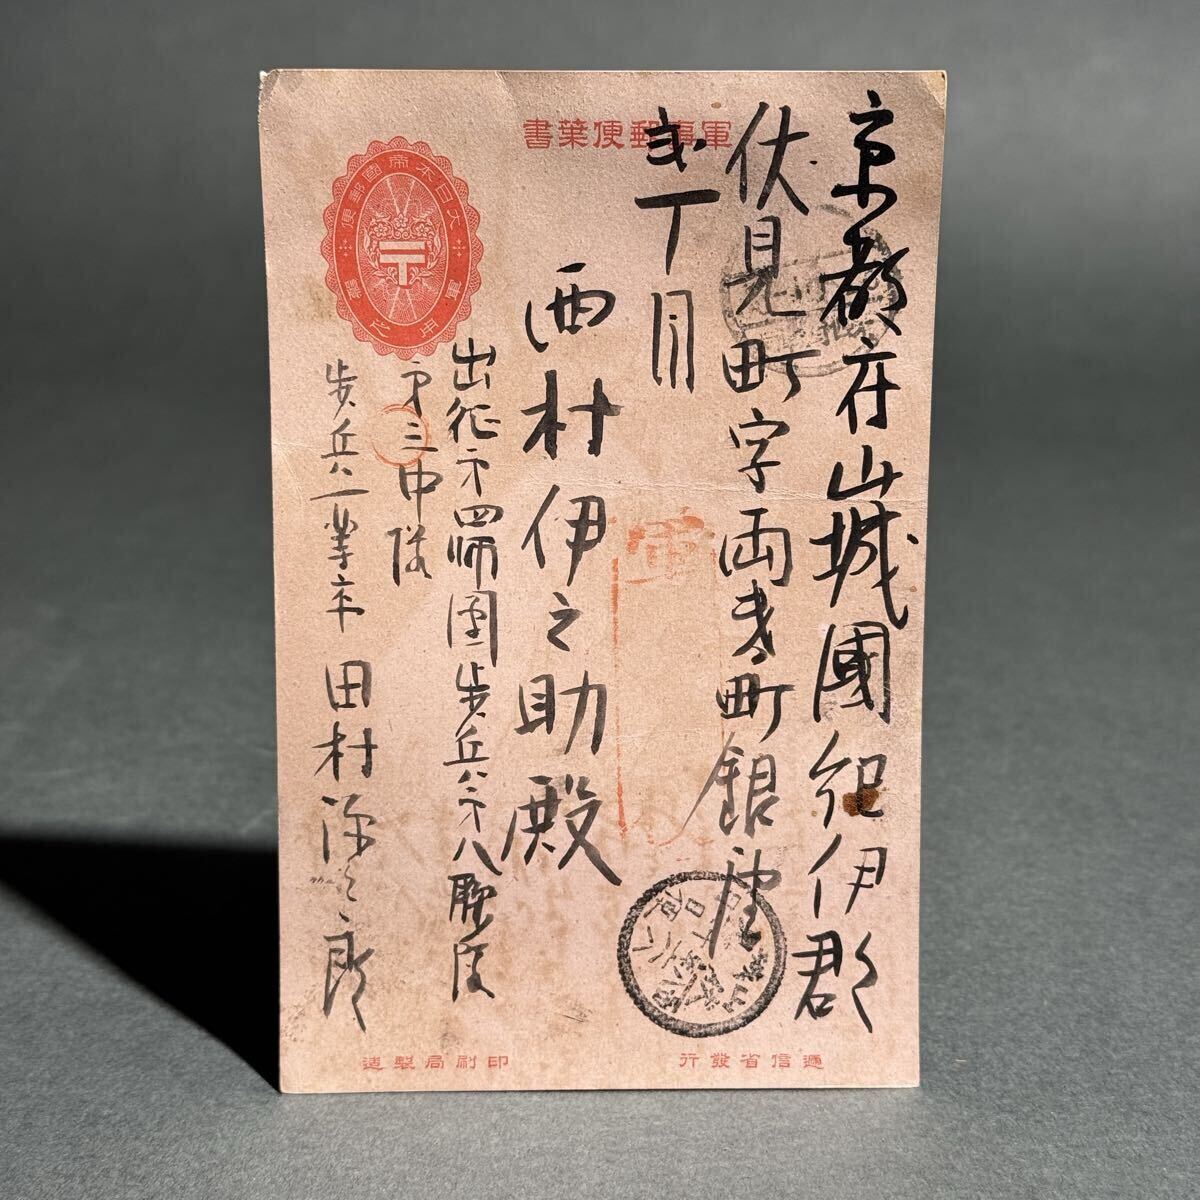 軍事郵便葉書
大日本帝國郵便
京都府山城國紀伊郡
伏見町字両替町銀座
弐丁目
西村伊之助殿
出征第四師團歩兵第八聯隊
第三中隊
歩兵一等卒 田村
郎
軍
遞信省發行
印刷局製造